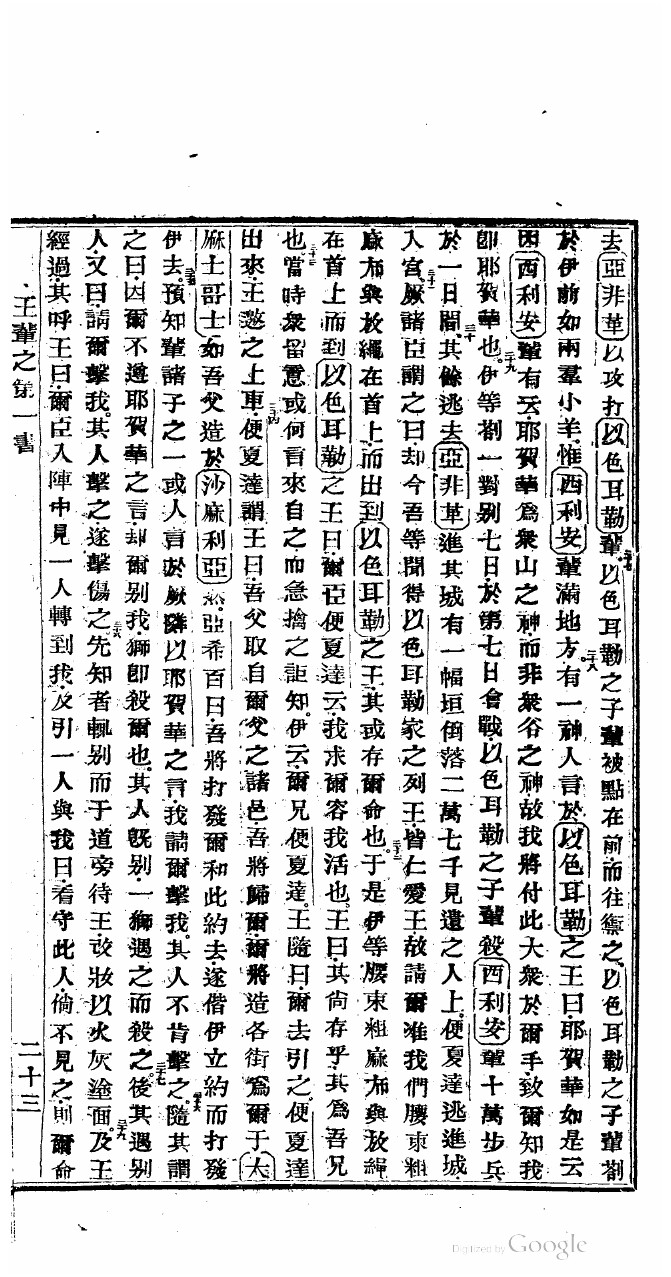 去亞非革以攻打以色耳勒輩二十七以色耳勒之子輩被點在前而往禦之以色耳勒之子輩劄
於伊前如兩羣小羊惟西利安輩滿地方二十八有一神人言於以色耳勒之王曰耶賀華如是云
因西利安輩有云耶賀華爲衆山之神而非衆谷之神故我將付此大衆於爾手致爾知我
即耶賀華也二十九伊等劄一對别七日於第七日會戰以色耳勒之子輩殺西利安輩十萬步兵
於一日間三十其餘逃去亞非革進其城有一幅垣倒落二萬七千見遺之人上便夏達逃進城
入宮三十一厥諸臣謂之曰却今吾等聞得以色耳勒家之列王皆仁愛王故請爾准我們腰束粗
麻布與放繩在首上而出到以色耳勒之王其或存爾命也三十二于是伊等腰束粗麻布與放繩
在首上而到以色耳勒之王曰爾臣便夏達云我求爾容我活也王曰其尚存乎其爲吾兄
也三十三當時衆留意或何言來自之而急擒之詎知伊云爾兄便夏達王隨曰爾去引之便夏達
出來王邀之上車三十四便夏達謂王曰吾父取自爾父之諸邑吾將歸爾爾將造各街爲爾于大
麻士哥士如吾父造於沙麻利亞然亞希百曰吾將打發爾和此約去遂偕伊立約而打發
伊去三十五預知輩諸子之一或人言於厥隣以耶賀華之言我請爾擊我其人不肯擊之三十六隨其謂
之曰因爾不遵耶賀華之言却爾别我獅即殺爾也其人旣别一獅遇之而殺之三十七後其遇别
人又曰請爾擊我其人擊之遂擊傷之三十八先知者輒别而于道旁待王改妝以火灰塗面三十九及王
經過其呼王曰爾臣入陣中見一人轉到我及引一人與我曰看守此人倘不見之則爾命
王輩之第一書
二十三
Digitized by Google